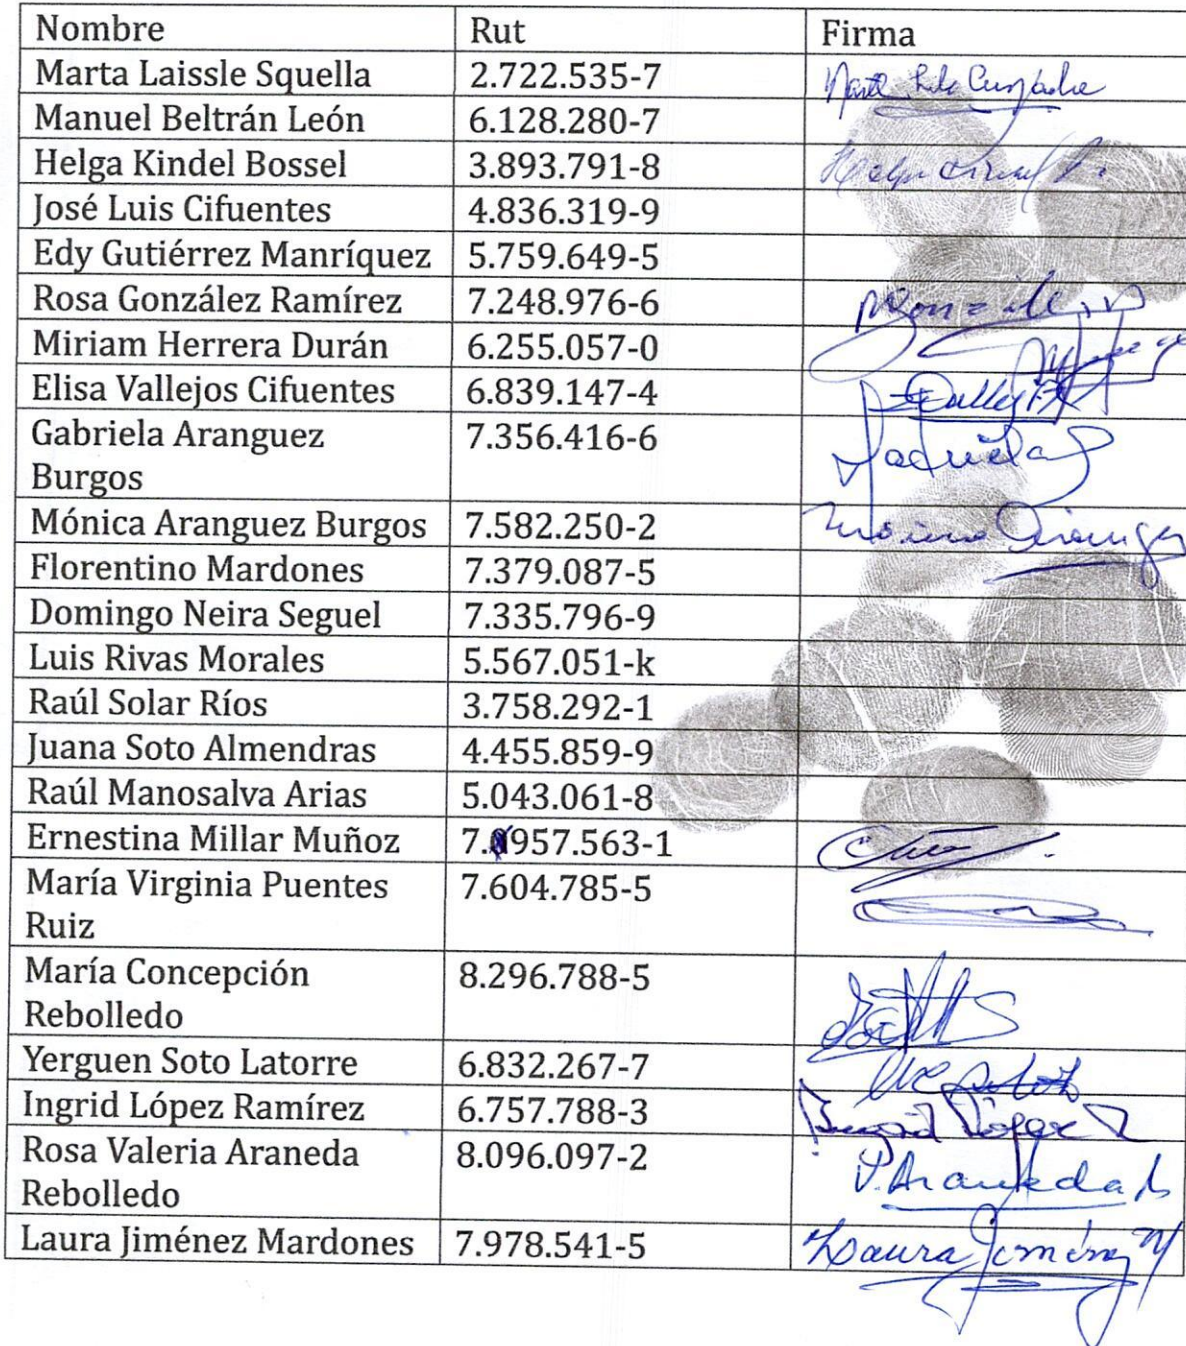 Nombre Rut Firma
Marta Laissle Squella 2.722.535-7
Manuel Beltrán León 6.128.280-7
Helga Kindel Bossel 3.893.791-8 Helga
José Luis Cifuentes 4.836.319-9
Edy Gutiérrez Manríquez 5.759.649-5
Rosa González Ramírez 7.248.976-6
Miriam Herrera Durán 6.255.057-0
Elisa Vallejos Cifuentes 6.839.147-4
Gabriela Aranguez 7.356.416-6
Burgos
Mónica Aranguez Burgos 7.582.250-2
Florentino Mardones 7.379.087-5
Domingo Neira Seguel 7.335.796-9
Luis Rivas Morales 5.567.051-k
Raúl Solar Ríos 3.758.292-1
Juana Soto Almendras 4.455.859-9
Raúl Manosalva Arias 5.043.061-8
Ernestina Millar Muñoz 7.957.563-1
María Virginia Puentes 7.604.785-5
Ruiz
María Concepción 8.296.788-5
Rebolledo
Yerguen Soto Latorre 6.832.267-7
Ingrid López Ramírez 6.757.788-3 Ingrid López
Rosa Valeria Araneda 8.096.097-2 V. Araneda
Rebolledo
Laura Jiménez Mardones 7.978.541-5 Laura Jiménez M